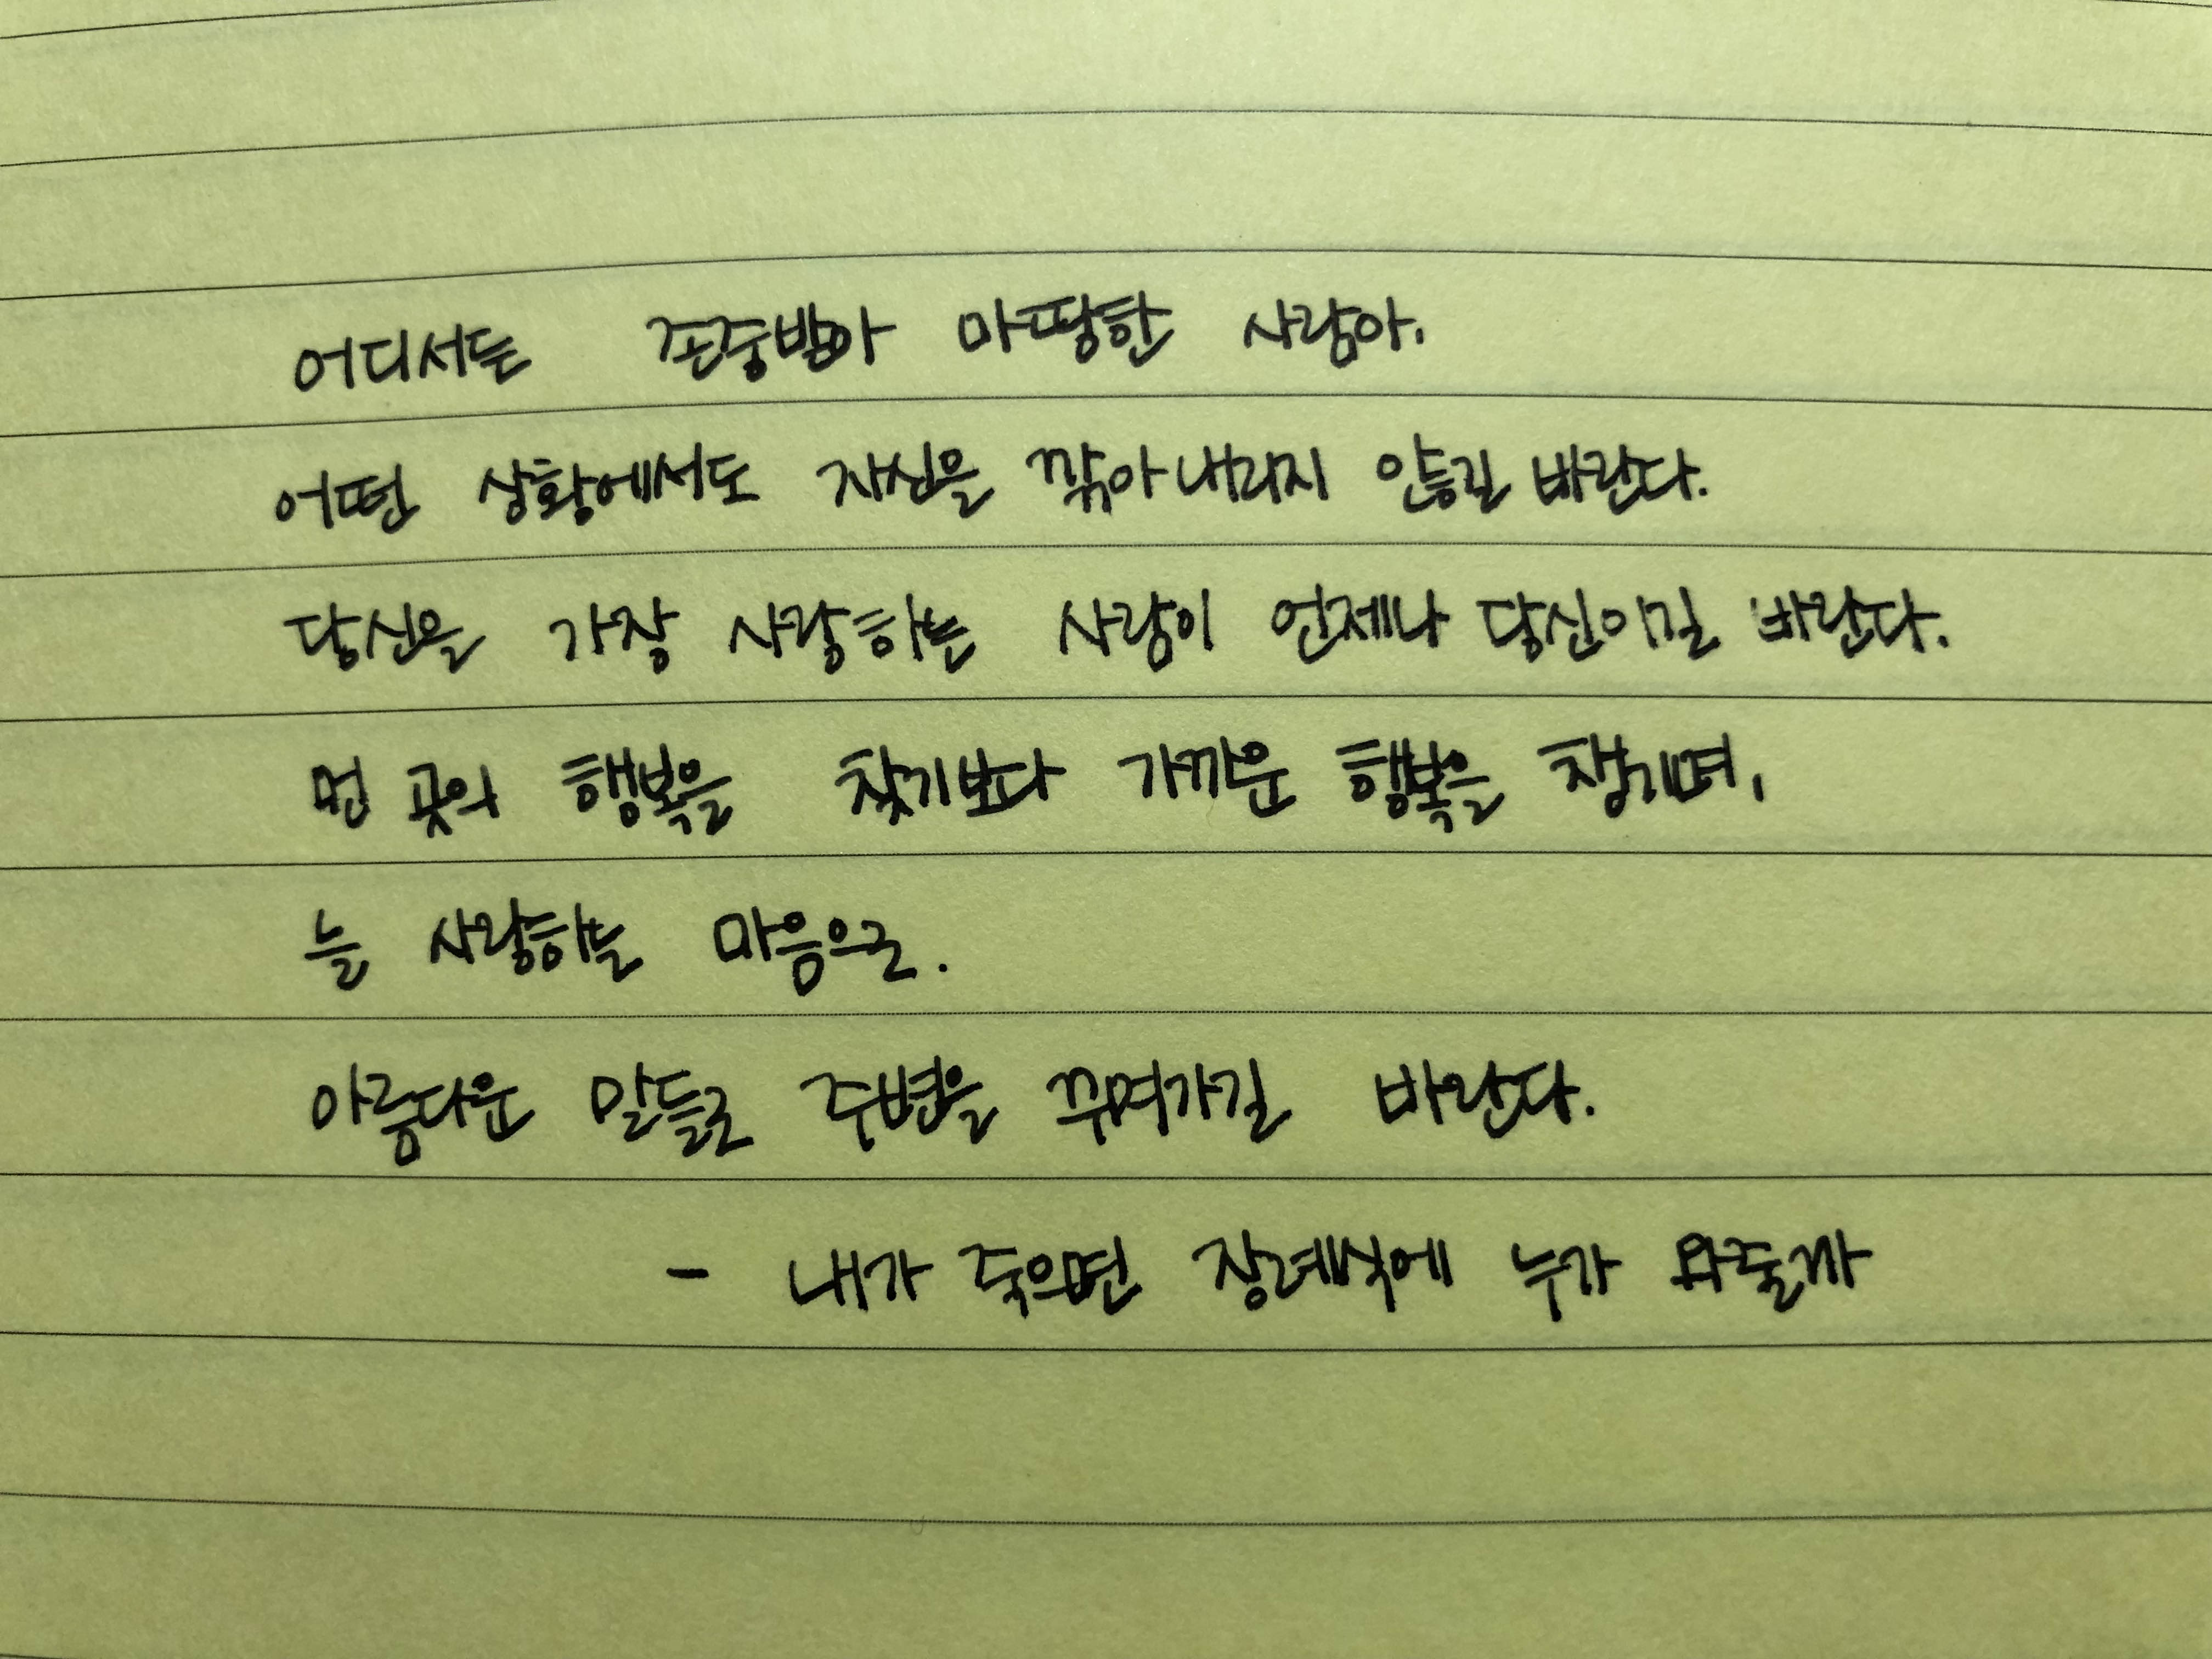 어디서든 존중받아 마땅한 사람아,
어떤 상황에서도 자신을 깎아내리지 않길 바란다.
당신을 가장 사랑하는 사람이 언제나 당신이길 바란다.
먼 곳의 행복을 찾기보다 가까운 행복을 챙기며,
늘 사랑하는 마음으로.
아름다운 말들로 주변을 꾸며가길 바란다.
- 내가 죽으면 장례식에 누가 와줄까